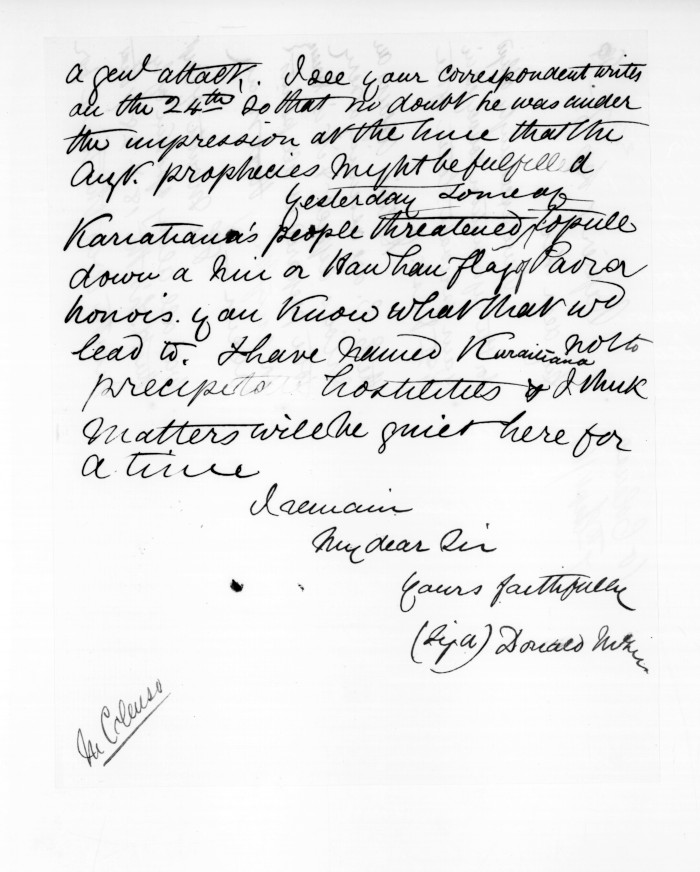 a genl attack. I see your correspondent writes
on the 24th, so that no doubt he was under
the impression at the time that the
Augt. prophecies might be fulfilled
Yesterday some of
Karaitiana's people threatened to pull
down a Niu or Hau hau flag of Paora
you know what that wd
lead to. I have Karaitiana not to
precipitate hostilities & I think
matters will be quiet here for
a time
I remain
My dear Sir
Yours faithfully
(Sigd) Donald McLean
Mr Colenso